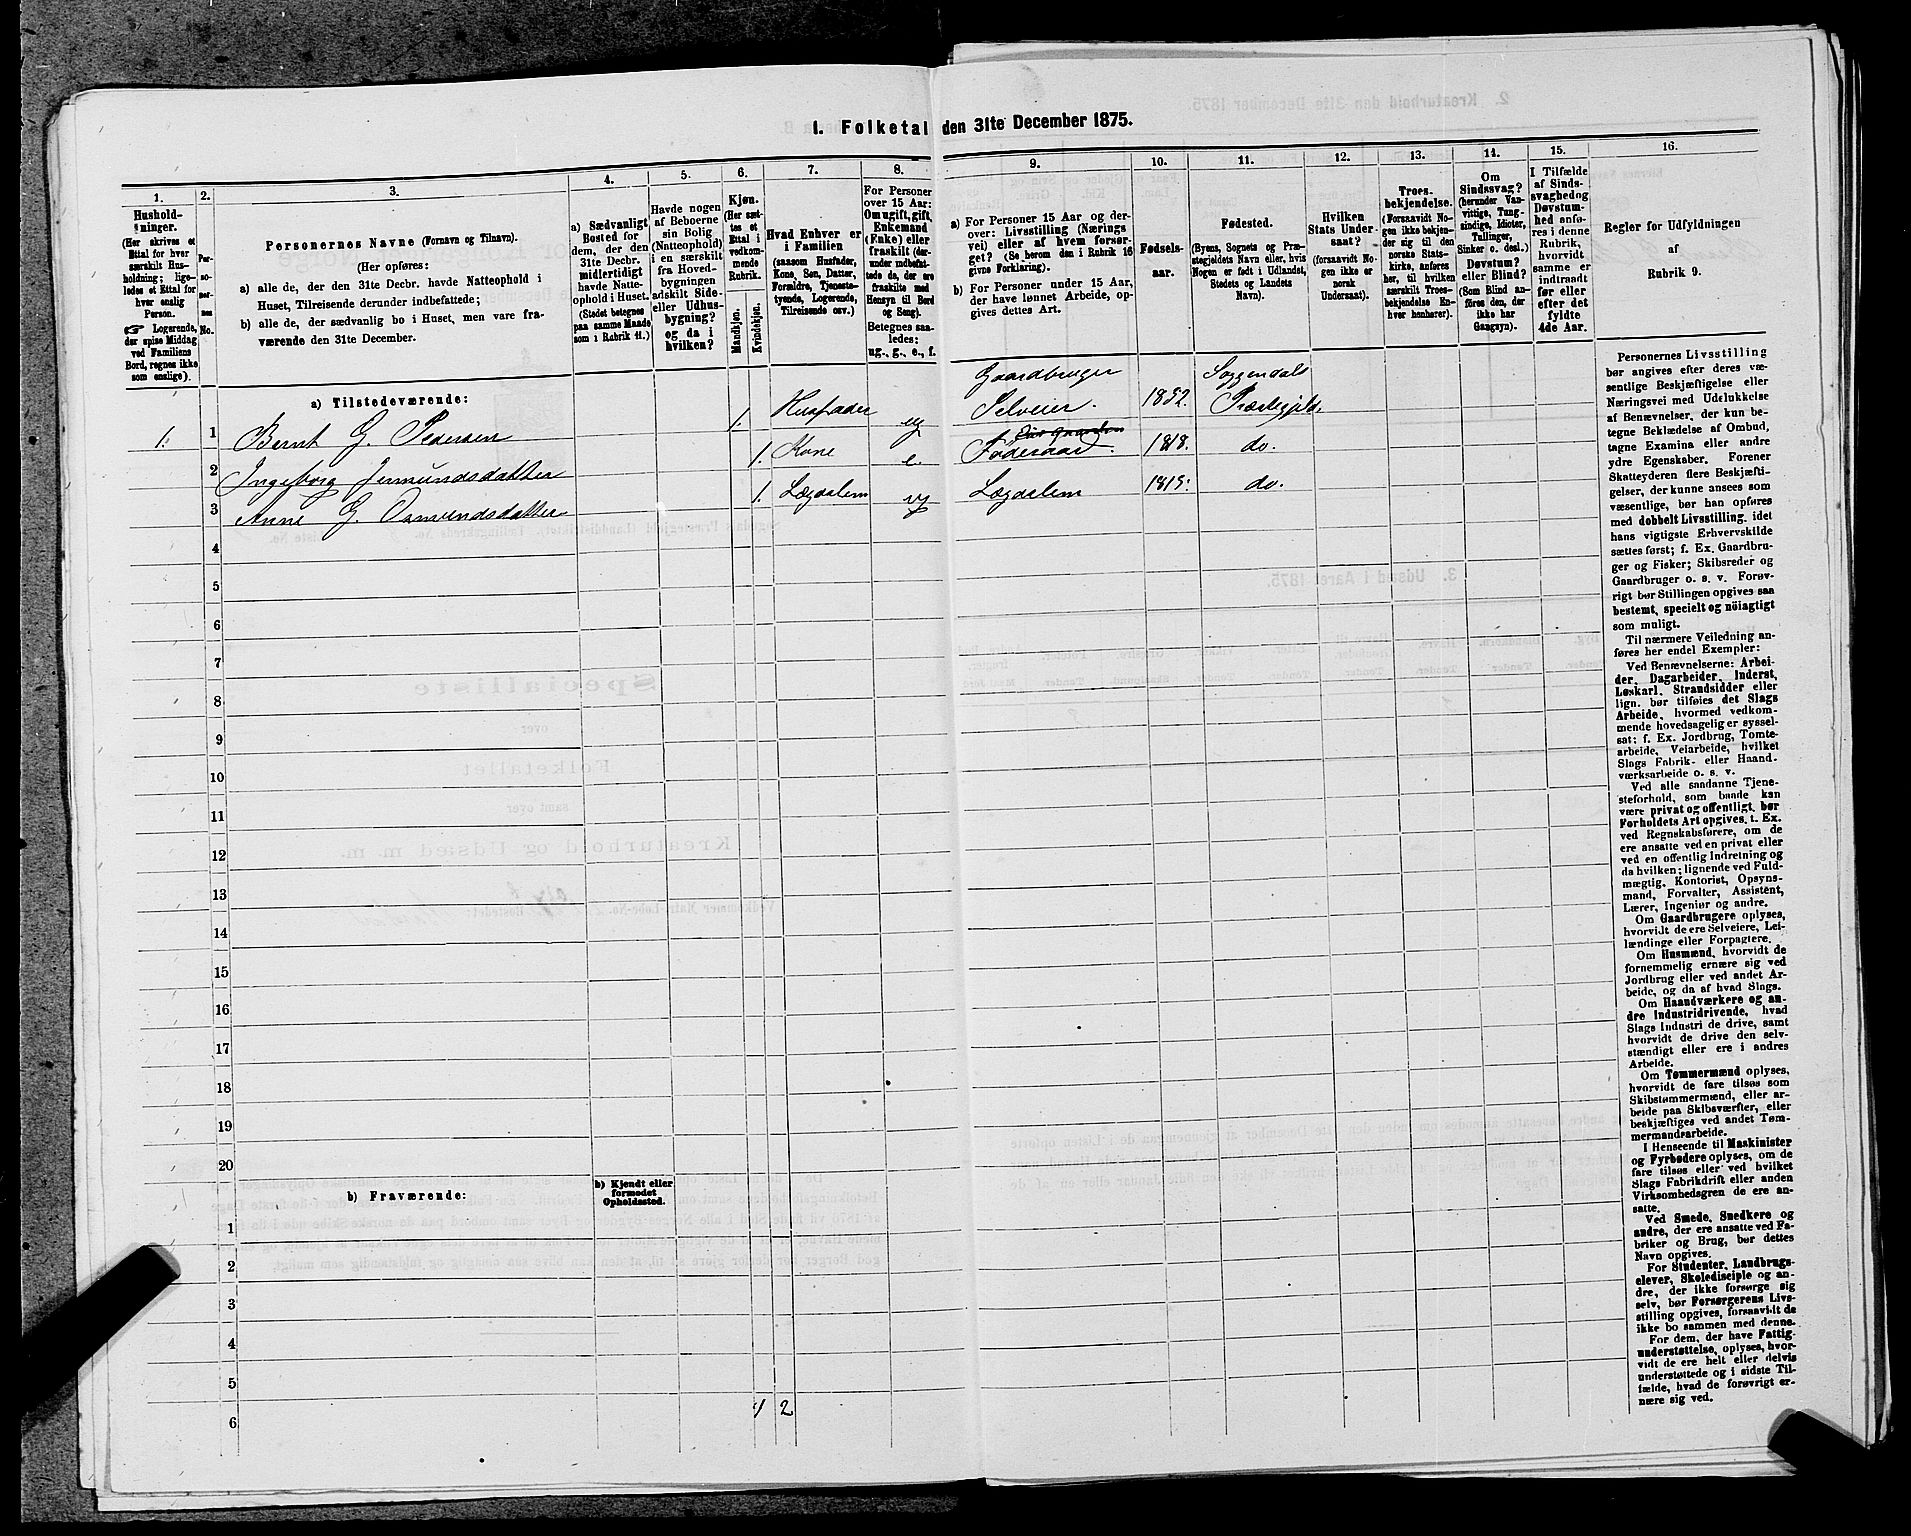 1. Folketal den 31te December 1875.
1.
2.
3.
4.
5.
6.
7.
8.
9.
10.
11.
12.
13.
14.
15.
16.
Hushold-
ninger.
(Her skrives et
Ettal for hver
særskilt Hus-
holdning; lige-
ledes et Ettal for
hver enslig
Person.
☞ Logerende,
der spise Middag
ved Familiens
Bord, regnes ikke
som enslige).
Per-
so-
ner-
nes
No.
Personernes Navne (Fornavn og Tilnavn).
(Her opføres:
a) alle de, der den 31te Decbr. havde Natteophold i
Huset, Tilreisende derunder indbefattede;
b) alle de, der sædvanlig bo i Huset, men vare fra-
værende den 31te December.
a) Sædvanligt
Bosted for
dem, der den
31te Decbr.
midlertidigt
havde Natte-
ophold i Huset.
(Stedet betegnes
paa samme Maade
som i Rubrik 11.)
Havde nogen
af Beboerne
sin Bolig
(Natteophold)
i en særskilt
fra Hoved-
bygningen
adskilt Side-
eller Udhus-
bygning?
og da i
hvilken?
Kjøn.
(Her sæt-
tes et
Ettal i
vedkom-
mende
Rubrik.
Mandkjøn.
Kvindekjøn.
Hvad Enhver er
i Familien
(saasom Husfader,
Kone, Søn, Datter,
Forældre, Tjeneste-
tyende, Logerende,
Tilreisende osv.)
For Personer
over 15 Aar:
Om ugift, gift,
Enkemand
(Enke) eller
fraskilt (der-
under indbefat-
tede da, der ere
fraskilte med
Hensyn til Bord
og Seng).
Betegnes saa-
ledes:
ug., g., e., f.
a) For Personer 15 Aar og der-
over: Livsstilling (Nærings
vei) eller af hvem forsør-
get? (Se herom den i Rubrik 16
givne Forklaring).
b) For Personer under 15 Aar,
der have lønnet Arbeide, op-
gives dettes Art.
Fødsels-
aar.
Fødested.
(Byens, Sognets og Præ-
stegjeldets Navn eller, hvis
Nogen er født i Udlandet,
Stedets og Landets
Navn).
Hvilken
Stats Under-
saat?
(forsaavidt No-
gen ikke er
norsk
Undersaat).
Troes-
bekjendelse.
(Forsaavidt No-
gen ikke bekjen-
der sig til den
norske Stats-
kirke, anføres
her, til hvilken
særskilt Troes-
bekjendelse En-
hver henhører).
Om
Sindssvag?
(herunder Van-
vittige, Tung-
sindige, Idioter,
Tullinger,
Sinker o. desl.)
Døvstum?
eller Blind?
(Som Blind an-
føres den, der
ikke har
Gangsyn).
I Tilfælde
af Sinds-
svaghed og
Døvstum-
hed anfø-
res i denne
Rubrik,
hvorvidt
samme er
indtraadt
før eller
efter det
fyldte
4de Aar.
Regler for Udfyldningen
af
Rubrik 9.
a) Tilstedeværende:
1. 1 Bernt G. Pedersen 1. Husfader ug Gaardbruger Selveier. 1852. Soggendals Præstegjeld.
2 Ingeborg Jermundsdatter 1. Kone e. Føderaad. 1818. do.
3 Anne G. Osmundsdatter 1. Lægdslem ug Lægdslem 1815. do.
4
5
6
7
8
9
10
11
12
13
14
15
16
17
18
19
20
b) Fraværende:
b) Kjendt eller
formodet
Opholdssted.
1
2
3
4
5
6
1 2
Personernes Livsstilling
bør angives efter deres væ-
sentlige Beskjæftigelse eller
Næringsvei med Udelukkelse
af Benævnelser, der kun be-
tegne Beklædelse af Ombud,
tagne Examina eller andre
ydre Egenskaber. Forener
Skatteyderen flere Beskjæfti-
gelser, der kunne ansees som
væsentlige, bør han opføres
med dobbelt Livsstilling, idet
hans vigtigste Erhvervskilde
sættes først; f. Ex. Gaardbru-
ger og Fisker; Skibsreder og
Gaardbruger o. s. v. Forøv-
rigt bør Stillingen opgives saa
bestemt, specielt og nöiagtigt
som muligt.
Til nærmere Veiledning an-
føres her endel Exempler:
Ved Benævnelserne: Arbei-
der, Dagarbeider, Inderst,
Løskarl, Strandsidder eller
lign. bør tilføies det Slags
Arbeide, hvormed vedkom-
mende hovedsagelig er syssel-
sat; f. Ex. Jordbrug, Tomte-
arbeide, Veiarbeide, hvilket
Slags Fabrik- eller Haand-
værksarbeide o. s. v.
Ved alle saadanne Tjene-
steforhold, som baade kan
være privat og offentligt, bør
Forholdets Art opgives, t. Ex.
ved Regnskabsførere, om de
ere ansatte ved en privat eller
ved en offentlig Indretning og
da hvilken; lignende ved Fuld-
mægtig, Kontorist, Opsyns-
mand, Forvalter, Assistent,
Lærer, Ingeniør og andre.
Om Gaardbrugere oplyses,
hvorvidt de ere Selveiere, Lei-
lændinge eller Forpagtere.
Om Husmænd, hvorvidt de
fornemmelig ernære sig ved
Jordbrug eller ved andet Ar-
beide, og da af hvad Slags.
Om Haandværkere og an-
dre Industridrivende, hvad
Slags Industri de drive, samt
hvorvidt de drive den selv-
stændigt eller ere i andres
Arbeide.
Om Tømmermænd oplyses,
hvorvidt de fare tilsøs som
Skibstømmermænd, eller ar-
beide paa Skibsværfter, eller
beskjæftiges ved andet Tøm-
mermandsarbeide.
I Henseende til Maskinister
og Fyrbødere oplyses, om de
fare tilsøs eller ved hvilket
Slags Fabrikdrift eller anden
Virksomhedsgren de ere an-
satte.
Ved Smede, Snedkere og
andre, der ere ansatte ved Fa-
briker og Brug, bør dettes
Navn opgives.
For Studenter, Landbrugs-
elever, Skoledisciple og an-
dre, der ikke forsørge sig
selv, bør Forsørgerens Livs-
stilling opgives, forsaavidt de
ikke bo sammen med denne.
For dem, der have Fattig-
understøttelse, oplyses, hvor-
vidt de ere helt eller delvis
understøttede og i sidste Til-
fælde, hvad de forøvrigt er-
nære sig ved.